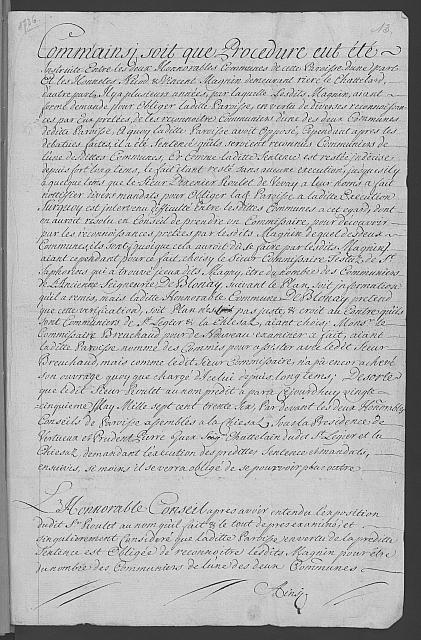 1736
13.
Comm'ainsj soit que Procedure eut été
Instruite Entre les deux Honnorables Communes de cette Paroisse d'une part
Et les Honnetes Neind & Vincent Magnin demeurant riere le Chattelard,
d'autre part, Il y a plusieurs années, par laquelle Lesdits Magnin, aiant
formé demande, pour Obliger ladite Paroisse, en vertu de diverses reconnoissan-
ces par Eux pretées, de les reconnoitre Communiers d'une des deux Communes
de dite Paroisse. A quoy ladite Paroisse avoit Opposé, Cependant apres les
debatües faits, il a été Sentencé quils seroient reconnus Communiers de
l'une desdittes Communes, Et Comme laditte Sentence est restée indécise
depuis fort long tems, le fait étant resté sans aucune execution, jusques il y
a quelque tems que le Sieur Perenier Rivulet de Vevay a leur noms a fait
nottiffier divers mandats, pour Obliger lad. Paroisse a laditte Execution
Surquoy est intervenu difficulté Entre les deux Communes a cet egard, dont
on auroit résolu en Conseil de prendre un Commissaire, pour découvrir
par les reconnoissances pretées par lesdits Magnin de quel des deux
Communes, ils sont, (quoy que cela auroit dû se faire par lesdits Magnin)
aiant cependant pour ce fait choisy le Sieur Commissaire Testuz de St.
Saphorens qui a trouvé jceux dits Magny, être du nombre des Communiers
de L'Ancienne Seigneurie De Blonay, suivant le Plan soit information
qu'il a remis, mais ladite Honorable Commune De Blonay pretend
que cette verification, soit Plan n'est pas juste, & croit au Contre qu'ils
sont Communiers de St. Legier & la Chiesaz, aiant choisy Monsr. le
Commissaire Breuchaud pour de nouveau examiner ce fait, aiant
laditte Paroisse nommé des Commis pour assister avec ledit Sieur
Breuchaud, mais comme ledit Sieur Commissaire, na pas encor achevé
son ouvrage quoy que chargé dicelui depuis long tems; De sorte
que ledit Sieur Rivulet au nom predit a paru Ce jourdhuy vingt
cinquieme May Mille sept cent trente six, Par devant les deux Honorables
Conseils de Paroisse assemblés a la Chiesaz, sous la Presidence de
Vertueux et Prudent Pierre Chattelain dudit St. Legier et la
Chiesaz, demandant lexecution des predittes Sentence et mandats,
ensuivis, si moins il se verra obligé de se pourvoir plus outre.
L'Honnorable Conseil apres avoir entendu l'exposition
dudit Sr. Rivulet au nom quil fait & le tout de pres examiné, et
singulierement Consideré que laditte Paroisse en vertu de la preditte
Sentence est Obligée de reconnoitre lesdits Magnin pour être
du nombre des Communiers de lune des deux Communes
Ainsj